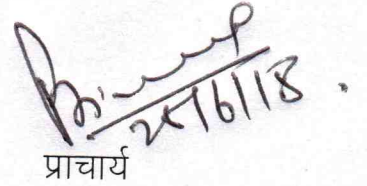 25/6/18.
प्राचार्य